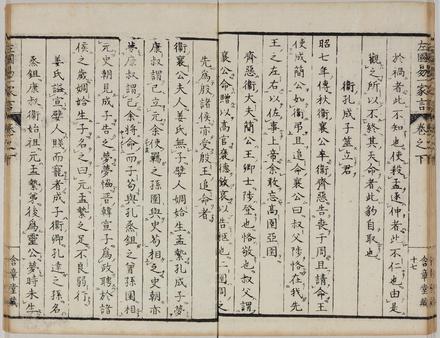 左國易家言 卷之下 十七 含章堂藏
於禍者此不知也使殺孟逐仲者此不仁也由是
觀之所以不終其天命者此豹自取也
衛孔成子筮立君
昭七年傳秋衛襄公卒衛齊惡告喪于周且請命王
使成簡公如衛弔且追命襄公曰叔父陟恪在我先
王之左右以佐事上帝余敢忘高圉亞圉
齊惡衛大夫簡公王卿士陟登也恪敬也叔父謂
襄公命贈以高官褒德敘哀
先為殷諸侯亦受殷王追命者
衛襄公夫人姜氏無子嬖人婤姶生孟縶孔成子夢
康叔謂己立元余使羈之孫圉與史苟相之史朝亦
夢康叔謂己余將命而子苟與孔烝鉏之曾孫圉相
元史朝見成子告之夢夢協晉韓宣子為政聘於諸
侯之歲婤姶生子名之曰元孟縶之足不良弱行
姜氏諡宣嬖人賤而寵者成子衛卿孔達之孫名
烝鉏康叔衛始祖元孟縶弟後為靈公夢時未生
左國易家言 卷之下 含章堂藏